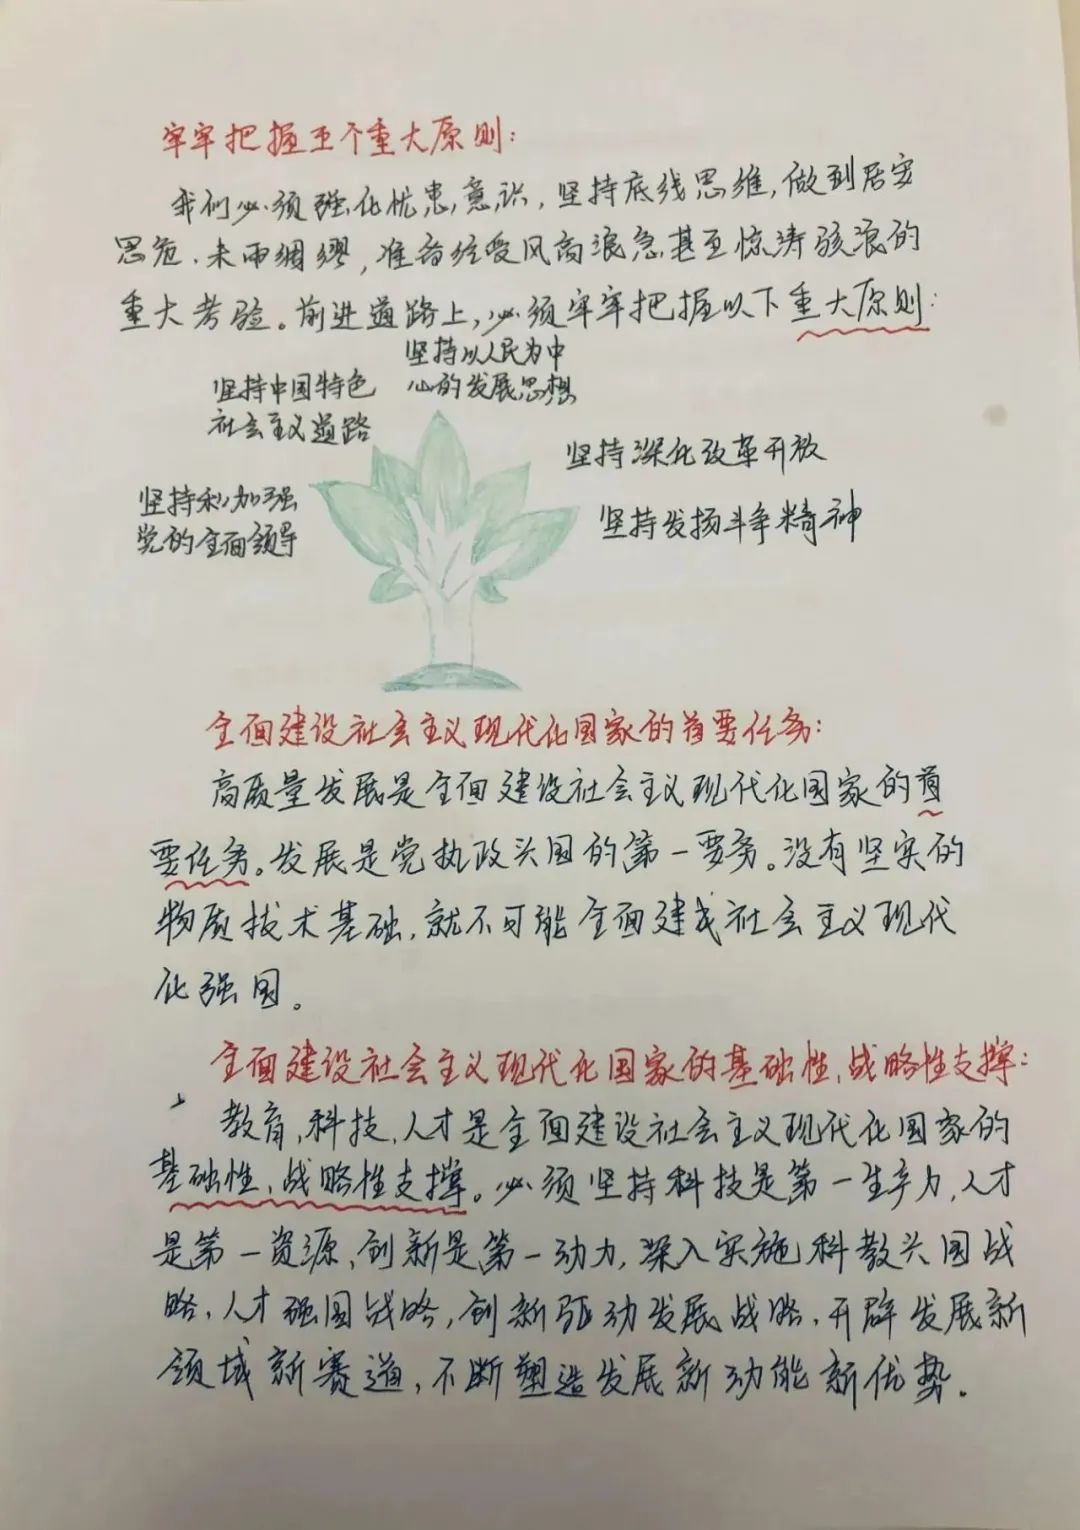 牢牢把握五个重大原则：
我们必须强化忧患意识，坚持底线思维，做到居安
思危、未雨绸缪，准备经受风高浪急甚至惊涛骇浪的
重大考验。前进道路上，必须牢牢把握以下重大原则：
坚持以人民为中
心的发展思想
坚持中国特色
社会主义道路
坚持深化改革开放
坚持和加强
党的全面领导
坚持发扬斗争精神
全面建设社会主义现代化国家的首要任务：
高质量发展是全面建设社会主义现代化国家的首
要任务。发展是党执政兴国的第一要务。没有坚实的
物质技术基础，就不可能全面建成社会主义现代
化强国。
全面建设社会主义现代化国家的基础性、战略性支撑：
教育、科技、人才是全面建设社会主义现代化国家的
基础性、战略性支撑。必须坚持科技是第一生产力、人才
是第一资源、创新是第一动力，深入实施科教兴国战
略、人才强国战略，创新驱动发展战略，开辟发展新
领域新赛道，不断塑造发展新动能新优势。